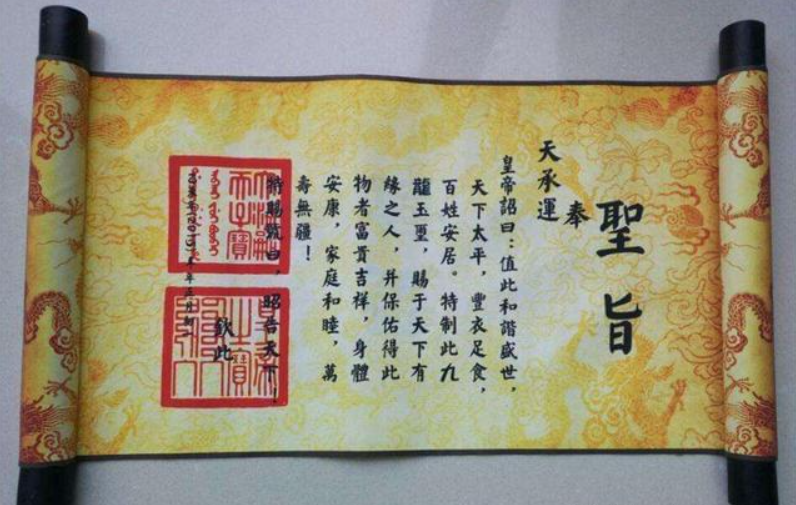 聖旨
奉
天承運
皇帝詔曰：值此和諧盛世，
天下太平，豐衣足食，
百姓安居。特制此九
龍玉璽，賜于天下有
緣之人，并保佑得此
物者富貴吉祥，身體
安康，家庭和睦，萬
壽無疆！
昭告天下！
欽此